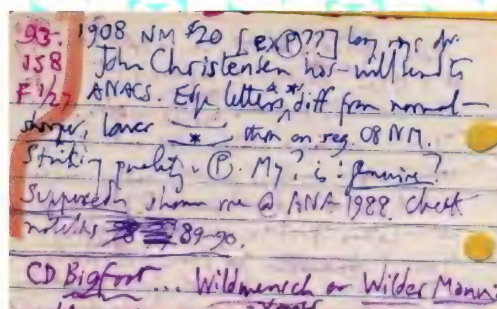 93- 1908 NM $20 [ex Ⓟ??] long rays dr.
158 John Christensen has - will send to
F 1/27 ANACS. Edge letters, * diff from normal -
sharper, lower * than on reg 08 NM.
Striking quality Ⓟ. My ? is: genuine?
Supposedly shown me @ ANA 1988. Check
89-90.
CD Bigfoot ... Wildmensch or Wilder Mann